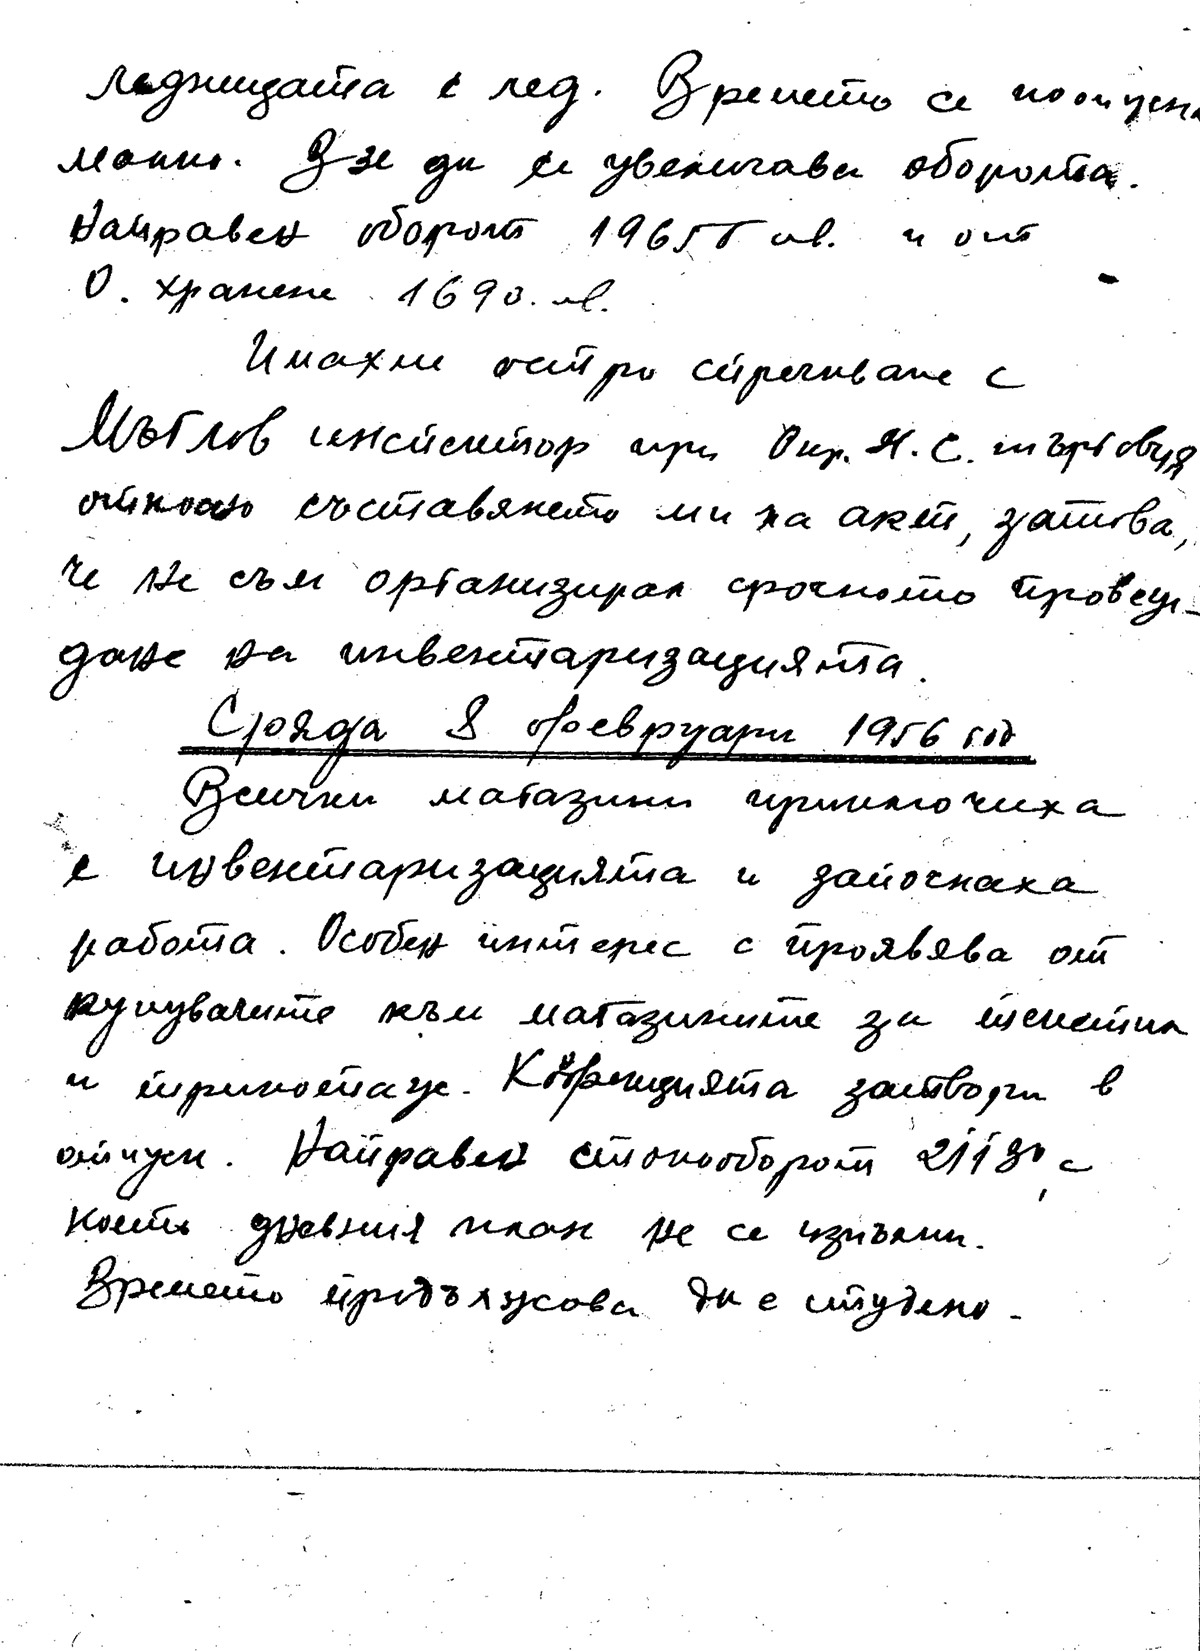 ледницата с лед. Времето се поотпусна
малко. Взе да се увеличава оборота.
Направен оборот 19655 лв. и от
О. хранене 1690. лв.
Имахме остро спречкване с
Мъглов инспектор при Окр. Н. С. търговия
относно съставянето ми на акт, затова,
че не съм организирал срочното провеж-
дане на инвентаризацията.
Сряда 8 февруари 1956 год
Всички магазини приключиха
с инвентаризацията и започнаха
работа. Особен интерес с проявява от
купувачите към магазините за текстил
и трикотаж. Конфекцията затвори в
отпуск. Направен стокооборот 21180, с
което дневния план не се изпълни.
Времето продължава да е студено.